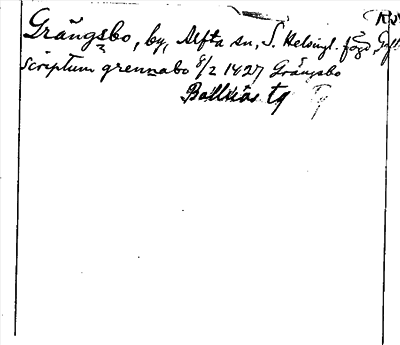 Grängsbo, by, Alfta sn, S. Helsingl. fögd.,
Scriptum grennabo 8/2 1427 Grängsbo
Bollnäs tg